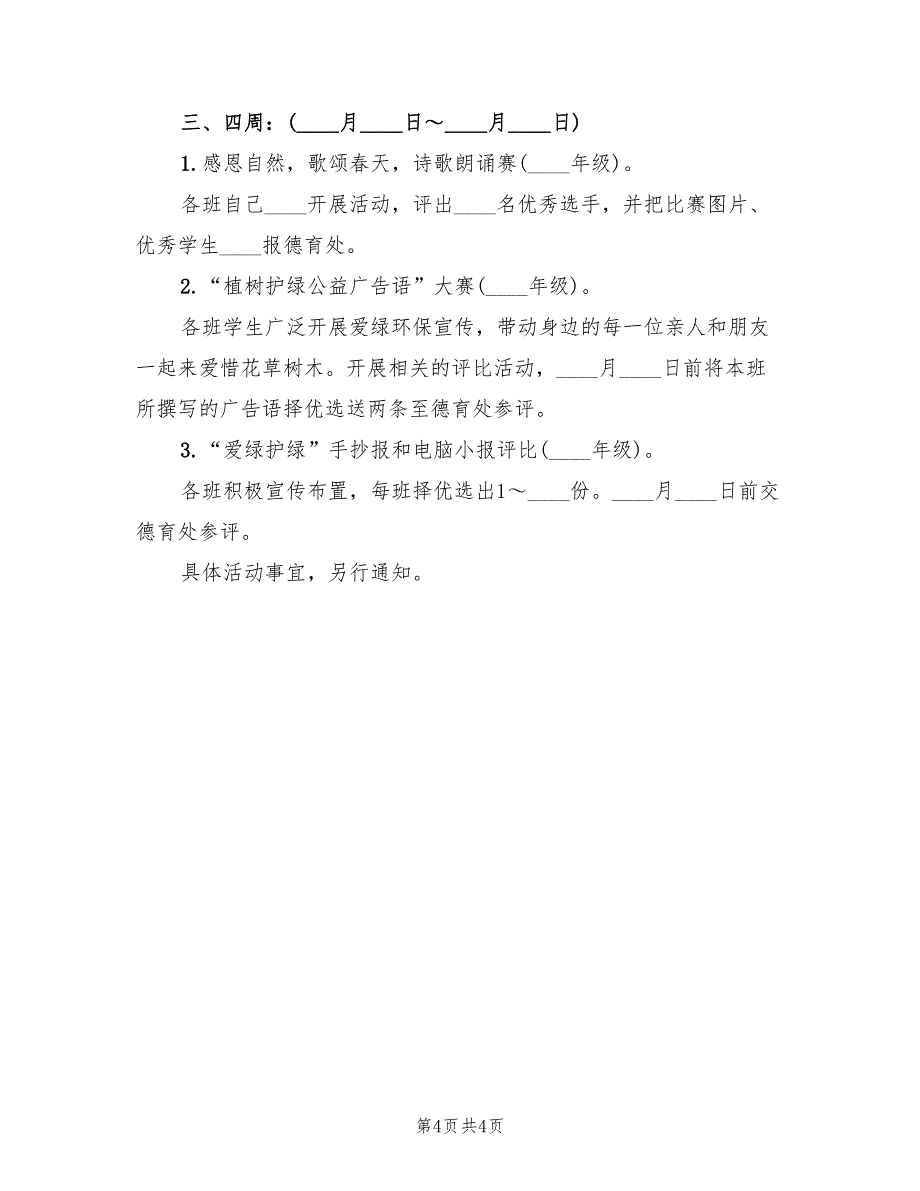 三、四周：(____月____日～____月____日)
1. 感恩自然，歌颂春天，诗歌朗诵赛(____年级)。
各班自己____开展活动，评出____名优秀选手，并把比赛图片、
优秀学生____报德育处。
2. “植树护绿公益广告语”大赛(____年级)。
各班学生广泛开展爱绿环保宣传，带动身边的每一位亲人和朋友
一起来爱惜花草树木。开展相关的评比活动，____月____日前将本班
所撰写的广告语择优选送两条至德育处参评。
3. “爱绿护绿”手抄报和电脑小报评比(____年级)。
各班积极宣传布置，每班择优选出1～____份。____月____日前交
德育处参评。
具体活动事宜，另行通知。
第4页 共4页